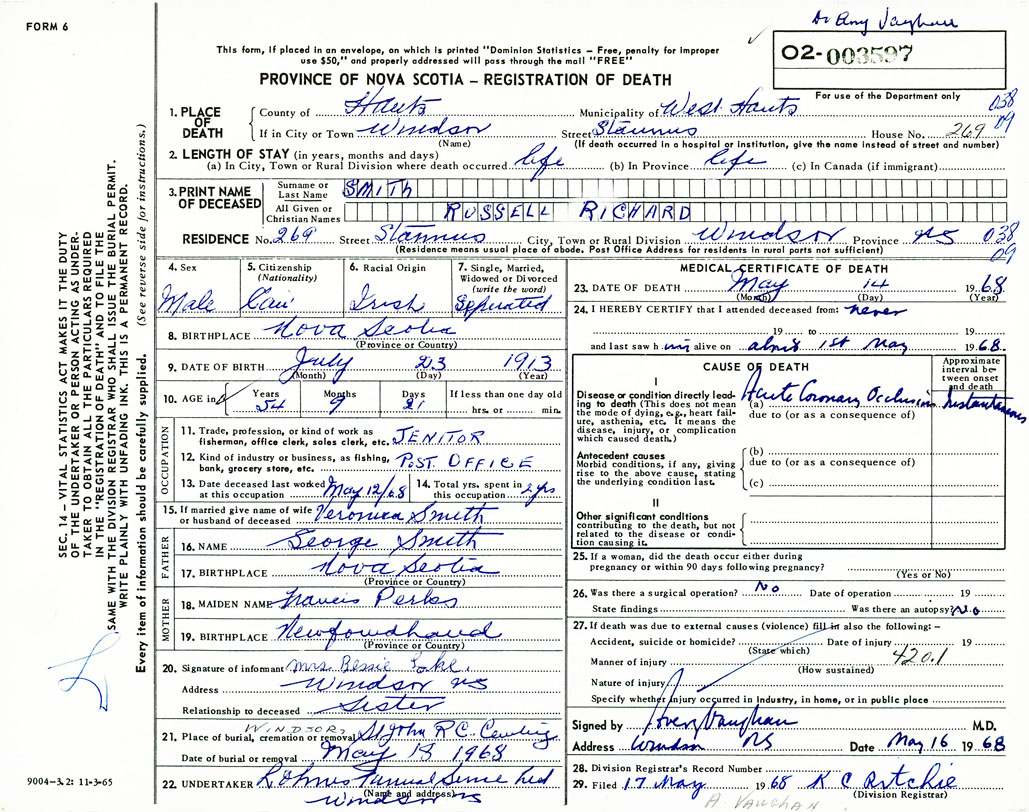 FORM 6
Dr Amy Vaughan
This form, if placed in an envelope, on which is printed "Dominion Statistics – Free, penalty for improper
use $50," and properly addressed will pass through the mail "FREE"
02-003597
PROVINCE OF NOVA SCOTIA – REGISTRATION OF DEATH
For use of the Department only
038
09
1. PLACE OF DEATH
County of Hants Municipality of West Hants
If in City or Town Windsor Street Stannus House No. 269
(Name) (If death occurred in a hospital or institution, give the name instead of street and number)
2. LENGTH OF STAY (in years, months and days)
(a) In City, Town or Rural Division where death occurred life (b) In Province life (c) In Canada (if immigrant)
3. PRINT NAME OF DECEASED
Surname or Last Name SMITH
All Given or Christian Names RUSSELL RICHARD
RESIDENCE No. 269 Street Stannus City, Town or Rural Division Windsor Province NS
038
09
(Residence means usual place of abode. Post Office Address for residents in rural parts not sufficient)
4. Sex Male
5. Citizenship (Nationality) Can
6. Racial Origin Irish
7. Single, Married, Widowed or Divorced (write the word) Seperated
8. BIRTHPLACE Nova Scotia
(Province or Country)
9. DATE OF BIRTH July 23 1913
(Month) (Day) (Year)
10. AGE in Years 54 Months 9 Days 21 If less than one day old hrs. or min.
OCCUPATION
11. Trade, profession, or kind of work as fisherman, office clerk, sales clerk, etc. JENITOR
12. Kind of industry or business, as fishing, bank, grocery store, etc. POST OFFICE
13. Date deceased last worked at this occupation May 12/68
14. Total yrs. spent in this occupation 2 yrs
15. If married give name of wife or husband of deceased Veronica Smith
FATHER
16. NAME George Smith
17. BIRTHPLACE Nova Scotia
(Province or Country)
MOTHER
18. MAIDEN NAME Francis Perks
19. BIRTHPLACE Newfowdhaud
(Province or Country)
20. Signature of informant Mrs Bessie
Address Windsor NS
Relationship to deceased Sister
21. Place of burial, cremation or removal WINDSOR St John RC
Date of burial or removal May 18 1968
22. UNDERTAKER Funeral Ltd
(Name and address)
Windsor NS
MEDICAL CERTIFICATE OF DEATH
23. DATE OF DEATH May 14 1968
(Month) (Day) (Year)
24. I HEREBY CERTIFY that I attended deceased from: never
19 to 19
and last saw him alive on about 1st May 1968.
CAUSE OF DEATH
Approximate interval between onset and death
I
Disease or condition directly leading to death (This does not mean the mode of dying, e.g., heart failure, asthenia, etc. It means the disease, injury, or complication which caused death.)
(a) Acute Coronary Occlusion Instantaneous
due to (or as a consequence of)
Antecedent causes
Morbid conditions, if any, giving rise to the above cause, stating the underlying condition last.
(b)
due to (or as a consequence of)
(c)
II
Other significant conditions contributing to the death, but not related to the disease or condition causing it.
25. If a woman, did the death occur either during pregnancy or within 90 days following pregnancy?
(Yes or No)
26. Was there a surgical operation? No Date of operation 19
State findings Was there an autopsy? No
27. If death was due to external causes (violence) fill in also the following: –
Accident, suicide or homicide? Date of injury 19
(State which)
420.1
Manner of injury
(How sustained)
Nature of injury
Specify whether injury occurred in industry, in home, or in public place
Signed by Vaughan M.D.
Address Windsor NS Date May 16 1968
28. Division Registrar's Record Number
29. Filed 17 May 1968 K C Ritchie
(Division Registrar)
A. VAUGHAN
SEC. 14 – VITAL STATISTICS ACT MAKES IT THE DUTY
OF THE UNDERTAKER OR PERSON ACTING AS UNDERTAKER
TO OBTAIN ALL THE PARTICULARS REQUIRED
IN THE "REGISTRATION OF DEATH" AND TO FILE THE
SAME WITH THE DIVISION REGISTRAR WHO SHALL ISSUE THE BURIAL PERMIT.
WRITE PLAINLY WITH UNFADING INK. THIS IS A PERMANENT RECORD.
Every item of information should be carefully supplied. (See reverse side for instructions.)
9004–3.2: 11-3-65